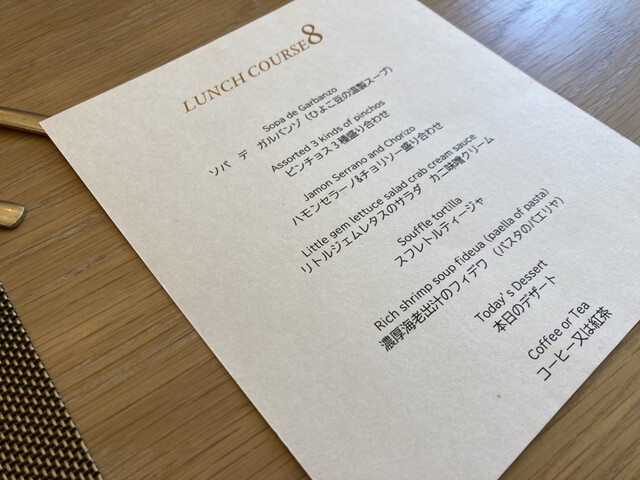 LUNCH COURSE 8
Sopa de Garbanzo
ソパ デ ガルバンゾ (ひよこ豆の温製スープ)
Assorted 3 kinds of pinchos
ピンチョス3種盛り合わせ
Jamon Serrano and Chorizo
ハモンセラーノ&チョリソー盛り合わせ
Little gem lettuce salad crab cream sauce
リトルジェムレタスのサラダ カニ味噌クリーム
Souffle tortilla
スフレトルティージャ
Rich shrimp soup fideua (paella of pasta)
濃厚海老出汁のフィデワ (パスタのパエリヤ)
Today's Dessert
本日のデザート
Coffee or Tea
コーヒー又は紅茶